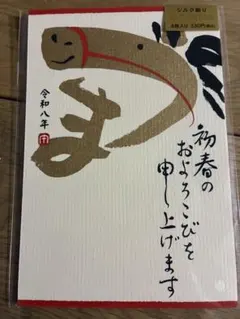 シルク刷り
うま
令和八年
初春の
およろこびを
申し上げます